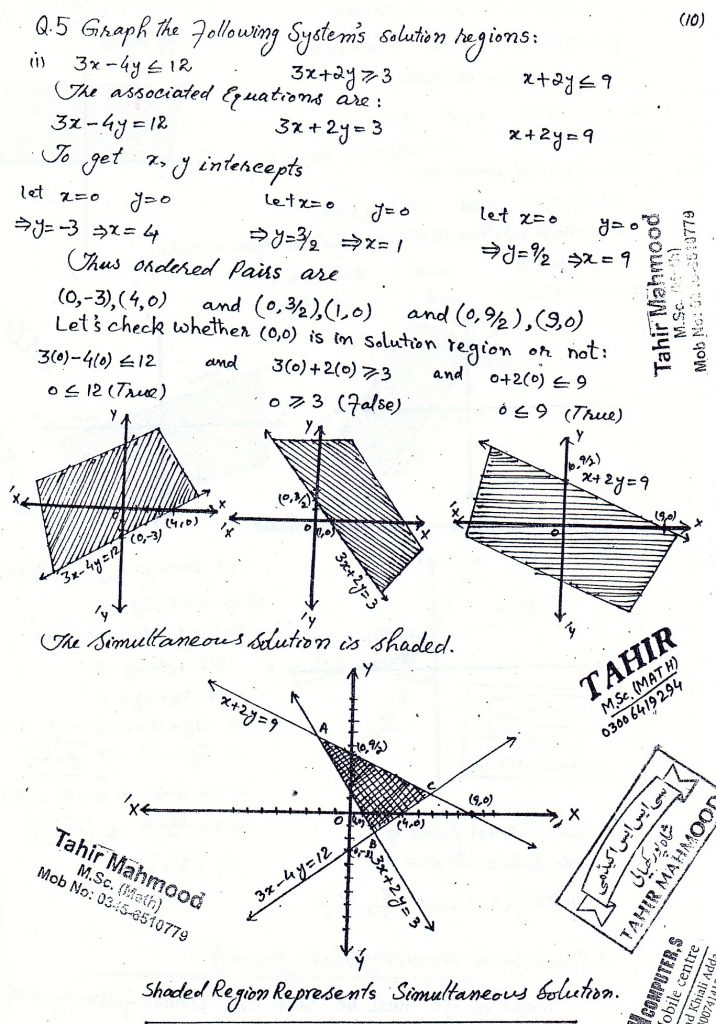 (10)
Q.5 Graph the Following System's solution regions:
(i) 3x-4y≤12 3x+2y≥3 x+2y≤9
The associated Equations are:
3x-4y=12 3x+2y=3 x+2y=9
To get x, y intercepts
let x=0 y=0 Let x=0 y=0 let x=0 y=0
⇒y=-3 ⇒x=4 ⇒y=3/2 ⇒x=1 ⇒y=9/2 ⇒x=9
Thus ordered Pairs are
(0,-3),(4,0) and (0,3/2),(1,0) and (0,9/2),(9,0)
Let's check whether (0,0) is in solution region or not:
3(0)-4(0)≤12 and 3(0)+2(0)≥3 and 0+2(0)≤9
0≤12 (True) 0≥3 (False) 0≤9 (True)
Tahir Mahmood
M.Sc. (Math)
Mob No: 0345-6510779
Y
'X X
0
(4,0)
(0,-3)
3x-4y=12
'Y
Y
(0,3/2)
'X X
0 (1,0)
3x+2y=3
'Y
Y
(0,9/2)
x+2y=9
(9,0)
'X X
0
'Y
The Simultaneous Solution is shaded.
TAHIR
M.Sc. (MATH)
03006419294
Y
x+2y=9
A
(0,9/2)
C
(9,0)
'X X
0
(4,0)
B
3x-4y=12
3x+2y=3
'Y
Tahir Mahmood
M.Sc. (Math)
Mob No: 0345-6510779
سی ایس ایس اکیڈمی
TAHIR MAHMOOD
COMPUTER,S
obile centre
d Khiali Adda
Shaded Region Represents Simultaneous Solution.